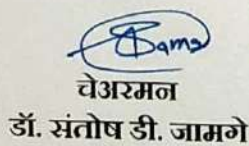 चेअरमन
डॉ. संतोष डी. जामगे